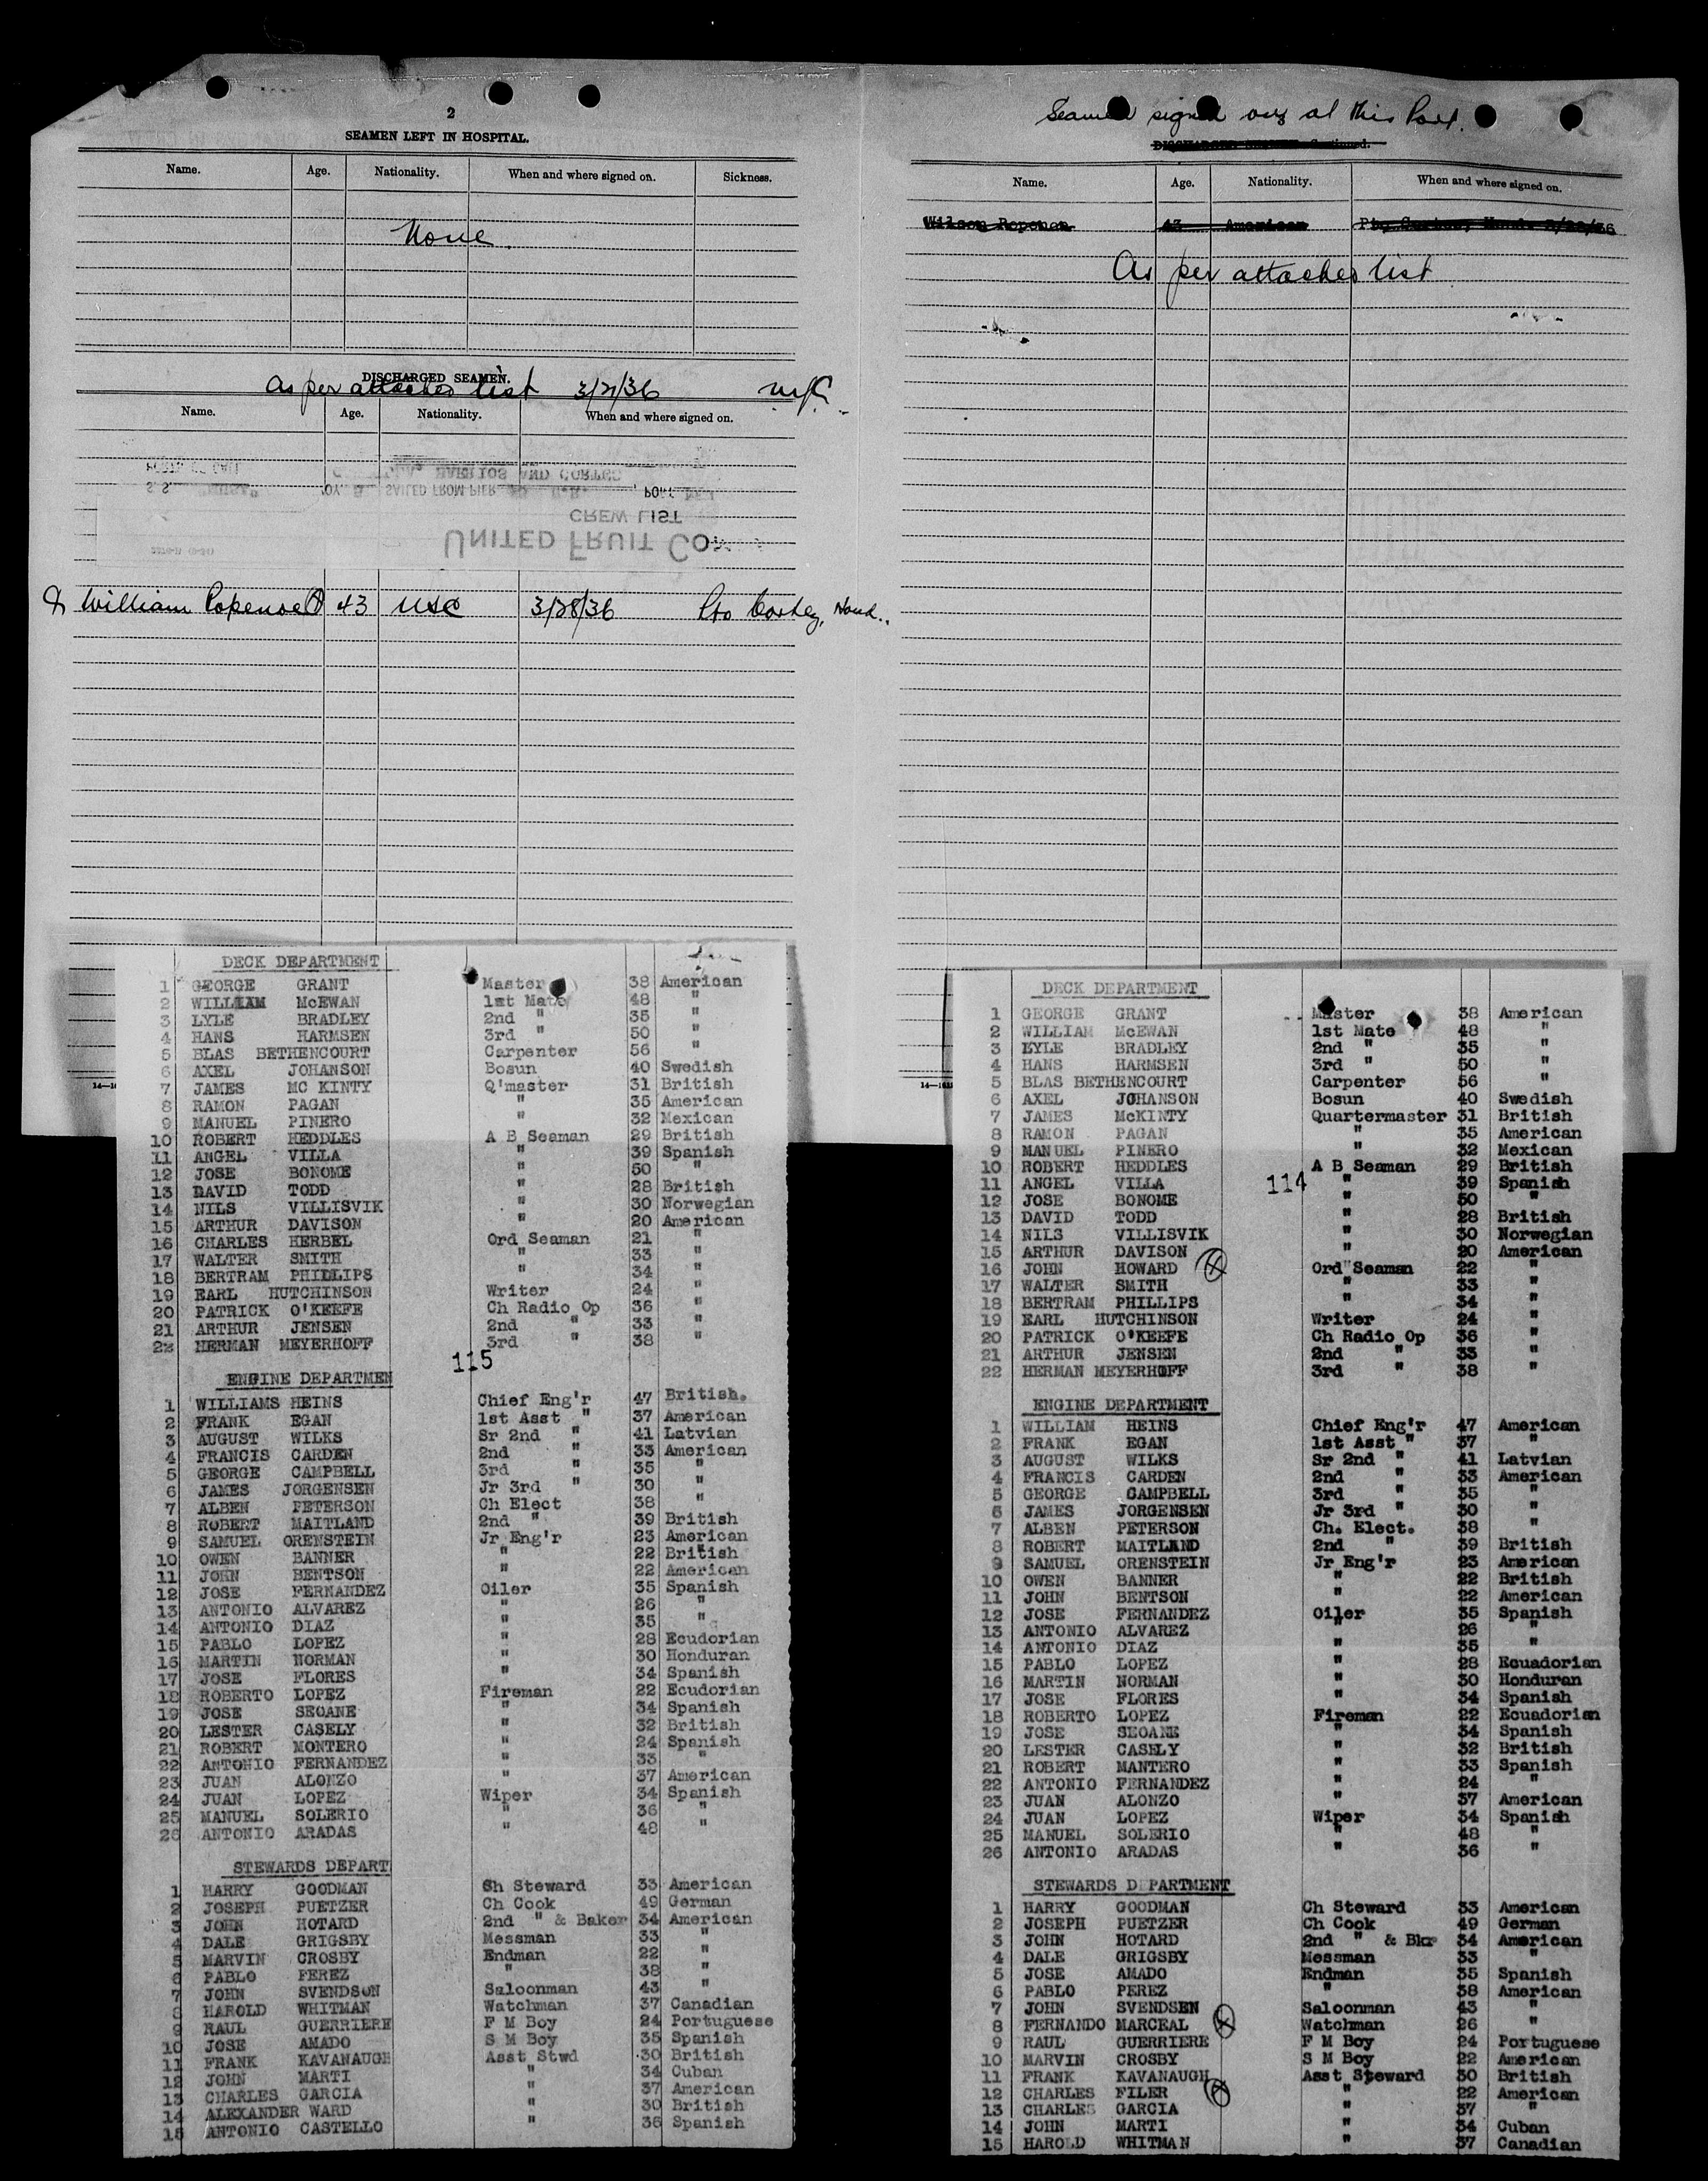 2
SEAMEN LEFT IN HOSPITAL.
Name. Age. Nationality. When and where signed on. Sickness.
None.
DISCHARGED SEAMEN.
As per attached list 3/21/36
Name. Age. Nationality. When and where signed on.
BARRIOS AND CORTEZ
SAILED FROM PIER
CREW LIST
UNITED FRUIT
William Popenoe 43 USC 3/28/36 Pto Cortez, Hond.
DECK DEPARTMENT
1 GEORGE GRANT Master 38 American
2 WILLIAM McEWAN 1st Mate 48 "
3 LYLE BRADLEY 2nd " 35 "
4 HANS HARMSEN 3rd " 50 "
5 BLAS BETHENCOURT Carpenter 56 "
6 AXEL JOHANSON Bosun 40 Swedish
7 JAMES MC KINTY Q'master 31 British
8 RAMON PAGAN " 35 American
9 MANUEL PINERO " 32 Mexican
10 ROBERT HEDDLES A B Seaman 29 British
11 ANGEL VILLA " 39 Spanish
12 JOSE BONOME " 50 "
13 DAVID TODD " 28 British
14 NILS VILLISVIK " 30 Norwegian
15 ARTHUR DAVISON " 20 American
16 CHARLES HERBEL Ord Seaman 21 "
17 WALTER SMITH " 33 "
18 BERTRAM PHILLIPS " 34 "
19 EARL HUTCHINSON Writer 24 "
20 PATRICK O'KEEFE Ch Radio Op 36 "
21 ARTHUR JENSEN 2nd " 33 "
22 HERMAN MEYERHOFF 3rd " 38 "
115
ENGINE DEPARTMEN
1 WILLIAMS HEINS Chief Eng'r 47 British.
2 FRANK EGAN 1st Asst " 37 American
3 AUGUST WILKS Sr 2nd " 41 Latvian
4 FRANCIS CARDEN 2nd " 33 American
5 GEORGE CAMPBELL 3rd " 35 "
6 JAMES JORGENSEN Jr 3rd " 30 "
7 ALBEN PETERSON Ch Elect 38 "
8 ROBERT MAITLAND 2nd " 39 British
9 SAMUEL ORENSTEIN Jr Eng'r 23 American
10 OWEN BANNER " 22 British
11 JOHN BENTSON " 22 American
12 JOSE FERNANDEZ Oiler 35 Spanish
13 ANTONIO ALVAREZ " 26 "
14 ANTONIO DIAZ " 35 "
15 PABLO LOPEZ " 28 Ecudorian
16 MARTIN NORMAN " 30 Honduran
17 JOSE FLORES " 34 Spanish
18 ROBERTO LOPEZ Fireman 22 Ecudorian
19 JOSE SEOANE " 34 Spanish
20 LESTER CASELY " 32 British
21 ROBERT MONTERO " 24 Spanish
22 ANTONIO FERNANDEZ " 33 "
23 JUAN ALONZO " 37 American
24 JUAN LOPEZ Wiper 34 Spanish
25 MANUEL SOLERIO " 36 "
26 ANTONIO ARADAS " 48 "
STEWARDS DEPART
1 HARRY GOODMAN Ch Steward 33 American
2 JOSEPH PUETZER Ch Cook 49 German
3 JOHN HOTARD 2nd " & Baker 34 American
4 DALE GRIGSBY Messman 33 "
5 MARVIN CROSBY Endman 22 "
6 PABLO PEREZ " 38 "
7 JOHN SVENDSON Saloonman 43 "
8 HAROLD WHITMAN Watchman 37 Canadian
9 RAUL GUERRIERE F M Boy 24 Portuguese
10 JOSE AMADO S M Boy 35 Spanish
11 FRANK KAVANAUGH Asst Stwd 30 British
12 JOHN MARTI " 34 Cuban
13 CHARLES GARCIA " 37 American
14 ALEXANDER WARD " 30 British
15 ANTONIO CASTELLO " 36 Spanish
Seamen signed on at this Port.
Name. Age. Nationality. When and where signed on.
43 American
As per attached list
DECK DEPARTMENT
1 GEORGE GRANT Master 38 American
2 WILLIAM McEWAN 1st Mate 48 "
3 EYLE BRADLEY 2nd " 35 "
4 HANS HARMSEN 3rd " 50 "
5 BLAS BETHENCOURT Carpenter 56 "
6 AXEL JOHANSON Bosun 40 Swedish
7 JAMES McKINTY Quartermaster 31 British
8 RAMON PAGAN " 35 American
9 MANUEL PINERO " 32 Mexican
10 ROBERT HEDDLES A B Seaman 29 British
11 ANGEL VILLA 114 " 39 Spanish
12 JOSE BONOME " 50 "
13 DAVID TODD " 28 British
14 NILS VILLISVIK " 30 Norwegian
15 ARTHUR DAVISON " 20 American
16 JOHN HOWARD Ord Seaman 22 "
17 WALTER SMITH " 33 "
18 BERTRAM PHILLIPS " 34 "
19 EARL HUTCHINSON Writer 24 "
20 PATRICK O'KEEFE Ch Radio Op 36 "
21 ARTHUR JENSEN 2nd " 33 "
22 HERMAN MEYERHOFF 3rd " 38 "
ENGINE DEPARTMENT
1 WILLIAM HEINS Chief Eng'r 47 American
2 FRANK EGAN 1st Asst " 37 "
3 AUGUST WILKS Sr 2nd " 41 Latvian
4 FRANCIS CARDEN 2nd " 33 American
5 GEORGE CAMPBELL 3rd " 35 "
6 JAMES JORGENSEN Jr 3rd " 30 "
7 ALBEN PETERSON Ch. Elect. 38 "
8 ROBERT MAITLAND 2nd " 39 British
9 SAMUEL ORENSTEIN Jr Eng'r 23 American
10 OWEN BANNER " 22 British
11 JOHN BENTSON " 22 American
12 JOSE FERNANDEZ Oiler 35 Spanish
13 ANTONIO ALVAREZ " 26 "
14 ANTONIO DIAZ " 35 "
15 PABLO LOPEZ " 28 Ecuadorian
16 MARTIN NORMAN " 30 Honduran
17 JOSE FLORES " 34 Spanish
18 ROBERTO LOPEZ Fireman 22 Ecuadorian
19 JOSE SEOANE " 34 Spanish
20 LESTER CASELY " 32 British
21 ROBERT MANTERO " 33 Spanish
22 ANTONIO FERNANDEZ " 24 "
23 JUAN ALONZO " 37 American
24 JUAN LOPEZ Wiper 34 Spanish
25 MANUEL SOLERIO " 48 "
26 ANTONIO ARADAS " 36 "
STEWARDS D PARTMENT
1 HARRY GOODMAN Ch Steward 33 American
2 JOSEPH PUETZER Ch Cook 49 German
3 JOHN HOTARD 2nd " & Bkr 34 American
4 DALE GRIGSBY Messman 33 "
5 JOSE AMADO Endman 35 Spanish
6 PABLO PEREZ " 38 American
7 JOHN SVENDSEN Saloonman 43 "
8 FERNANDO MARCEAL Watchman 26 "
9 RAUL GUERRIERE F M Boy 24 Portuguese
10 MARVIN CROSBY S M Boy 22 American
11 FRANK KAVANAUGH Asst Steward 30 British
12 CHARLES FILER " 22 American
13 CHARLES GARCIA " 37 "
14 JOHN MARTI " 34 Cuban
15 HAROLD WHITMAN " 37 Canadian